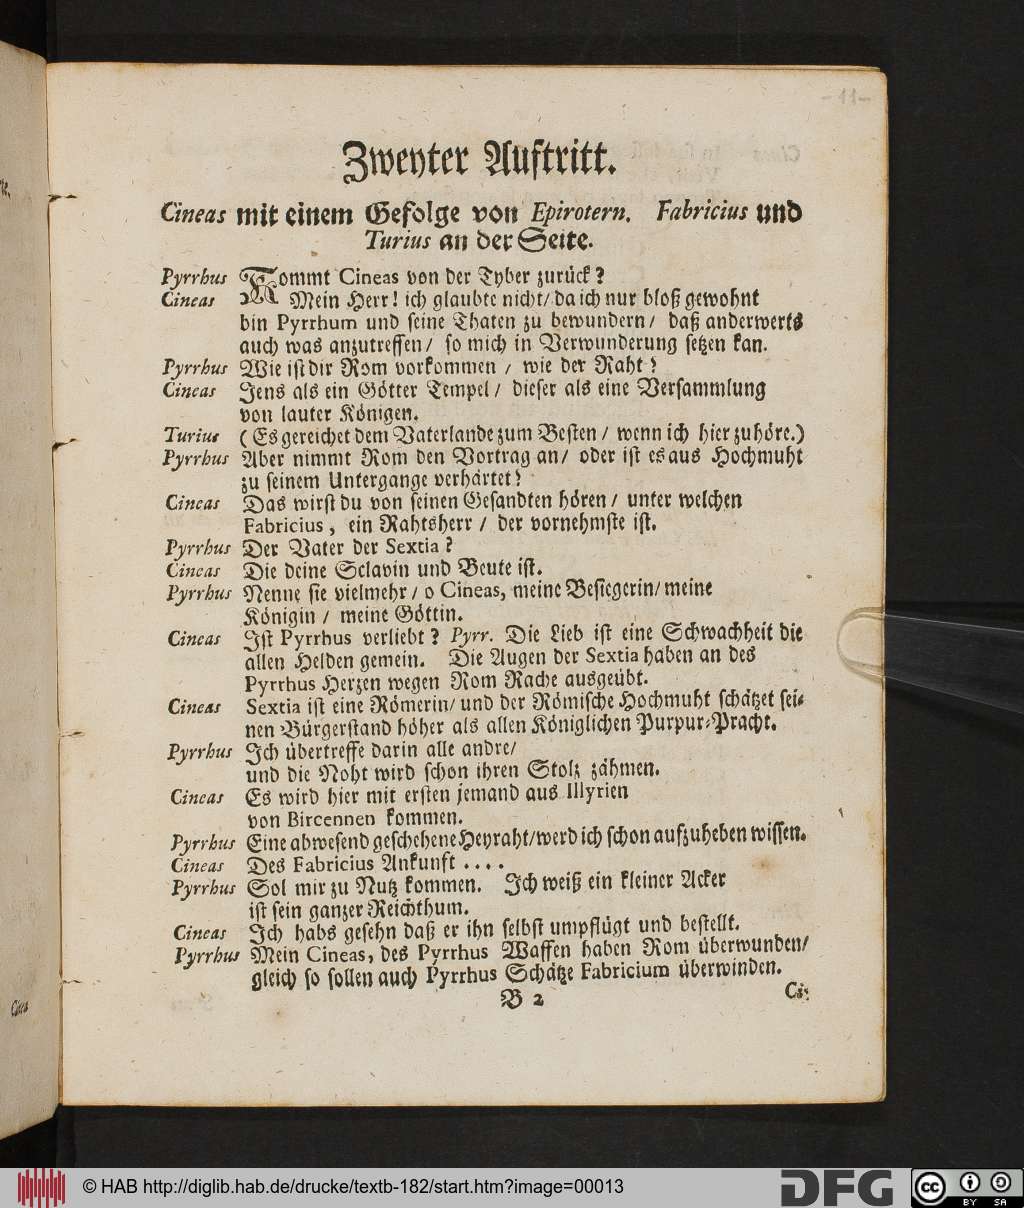 -11-
Zweyter Auftritt.
Cineas mit einem Gefolge von Epirotern. Fabricius und
Turius an der Seite.
Pyrrhus Kommt Cineas von der Tyber zurück?
Cineas Mein Herr! ich glaubte nicht/ da ich nur bloß gewohnt
bin Pyrrhum und seine Thaten zu bewundern/ daß anderwerts
auch was anzutreffen/ so mich in Verwunderung setzen kan.
Pyrrhus Wie ist dir Rom vorkommen / wie der Raht?
Cineas Jens als ein Götter Tempel/ dieser als eine Versammlung
von lauter Königen.
Turius (Es gereichet dem Vaterlande zum Besten / wenn ich hier zuhöre.)
Pyrrhus Aber nimmt Rom den Vortrag an/ oder ist es aus Hochmuht
zu seinem Untergange verhärtet?
Cineas Das wirst du von seinen Gesandten hören / unter welchen
Fabricius, ein Rahtsherr / der vornehmste ist.
Pyrrhus Der Vater der Sextia?
Cineas Die deine Sclavin und Beute ist.
Pyrrhus Nenne sie vielmehr / o Cineas, meine Besiegerin/ meine
Königin / meine Göttin.
Cineas Ist Pyrrhus verliebt? Pyrr. Die Lieb ist eine Schwachheit die
allen Helden gemein. Die Augen der Sextia haben an des
Pyrrhus Herzen wegen Rom Rache ausgeübt.
Cineas Sextia ist eine Römerin/ und der Römische Hochmuht schätzet sei-
nen Bürgerstand höher als allen Königlichen Purpur-Pracht.
Pyrrhus Ich übertreffe darin alle andre/
und die Noht wird schon ihren Stolz zähmen.
Cineas Es wird hier mit ersten jemand aus Illyrien
von Bircennen kommen.
Pyrrhus Eine abwesend geschehene Heyraht/ werd ich schon aufzuheben wissen.
Cineas Des Fabricius Ankunft ....
Pyrrhus Sol mir zu Nutz kommen. Ich weiß ein kleiner Acker
ist sein ganzer Reichthum.
Cineas Ich habs gesehn daß er ihn selbst umpflügt und bestellt.
Pyrrhus Mein Cineas, des Pyrrhus Waffen haben Rom überwunden/
gleich so sollen auch Pyrrhus Schätze Fabricium überwinden.
B 2 Ci-
© HAB http://diglib.hab.de/drucke/textb-182/start.htm?image=00013
DFG
cc BY SA